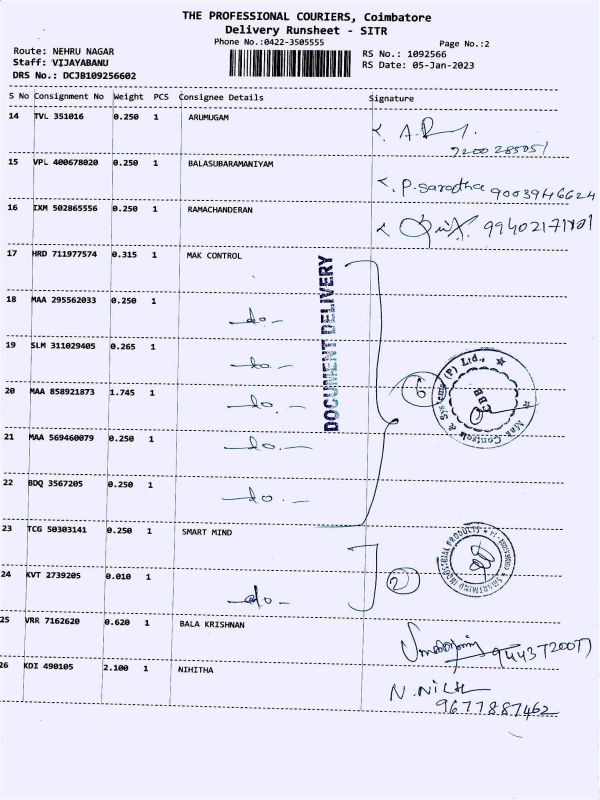 THE PROFESSIONAL COURIERS, Coimbatore
Delivery Runsheet - SITR
Phone No.:0422-3505555
Page No.:2
Route: NEHRU NAGAR
RS No.: 1092566
Staff: VIJAYABANU
RS Date: 05-Jan-2023
DRS No.: DCJB109256602
S No Consignment No Weight PCS Consignee Details Signature
14 TVL 351016 0.250 1 ARUMUGAM
7200285051
15 VPL 400678020 0.250 1 BALASUBARAMANIYAM
P. Saradha 9003946624
16 IXM 502865556 0.250 1 RAMACHANDERAN
17 HRD 711977574 0.315 1 MAK CONTROL
DOCUMENT DELIVERY
18 MAA 295562033 0.250 1 -do-
19 SLM 311029405 0.265 1 -do-
20 MAA 858921873 1.745 1 -do-
6
Mak Controls & Systems (P) Ltd.,
CBE
21 MAA 569460079 0.250 1 -do-
22 BDQ 3567205 0.250 1 -do-
23 TCG 50303141 0.250 1 SMART MIND
24 KVT 2739205 0.010 1 -do-
2
INDUSTRIAL PRODUCTS
25 VRR 7162620 0.620 1 BALA KRISHNAN
9443720077
26 KDI 490105 2.100 1 NIHITHA
9677887462